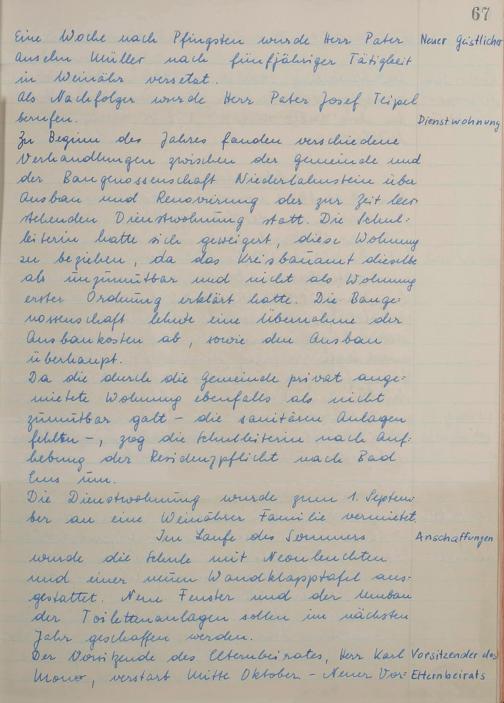 67
Eine Woche nach Pfingsten wurde Herr Pater Neuer Geistlicher
Anselm Müller nach fünfjähriger Tätigkeit
in Weinähr versetzt.
Als Nachfolger wurde Herr Pater Josef Teipel
berufen. Dienstwohnung
Zu Beginn des Jahres fanden verschiedene
Verhandlungen zwischen der Gemeinde und
der Baugenossenschaft Niederlahnstein über
Ausbau und Renovierung der zur Zeit leer
stehenden Dienstwohnung statt. Die Schul-
leiterin hatte sich geweigert, diese Wohnung
zu beziehen, da das Kreisbauamt dieselbe
als unzumutbar und nicht als Wohnung
erster Ordnung erklärt hatte. Die Bauge-
nossenschaft lehnte eine Übernahme der
Ausbaukosten ab, sowie den Ausbau
überhaupt.
Da die durch die Gemeinde privat ange-
mietete Wohnung ebenfalls als nicht
zumutbar galt – die sanitären Anlagen
fehlten –, zog die Schulleiterin nach Auf-
hebung der Residenzpflicht nach Bad
Ems um.
Die Dienstwohnung wurde zum 1. Septem
ber an eine Weinährer Familie vermietet.
Im Laufe des Sommers Anschaffungen
wurde die Schule mit Neonleuchten
und einer neuen Wandklapptafel aus-
gestattet. Neue Fenster und der Umbau
der Toilettenanlagen sollen im nächsten
Jahr geschaffen werden.
Der Vorsitzende des Elternbeirates, Herr Karl Vorsitzender des
verstarb Mitte Oktober – Neuer Vor- Elternbeirats